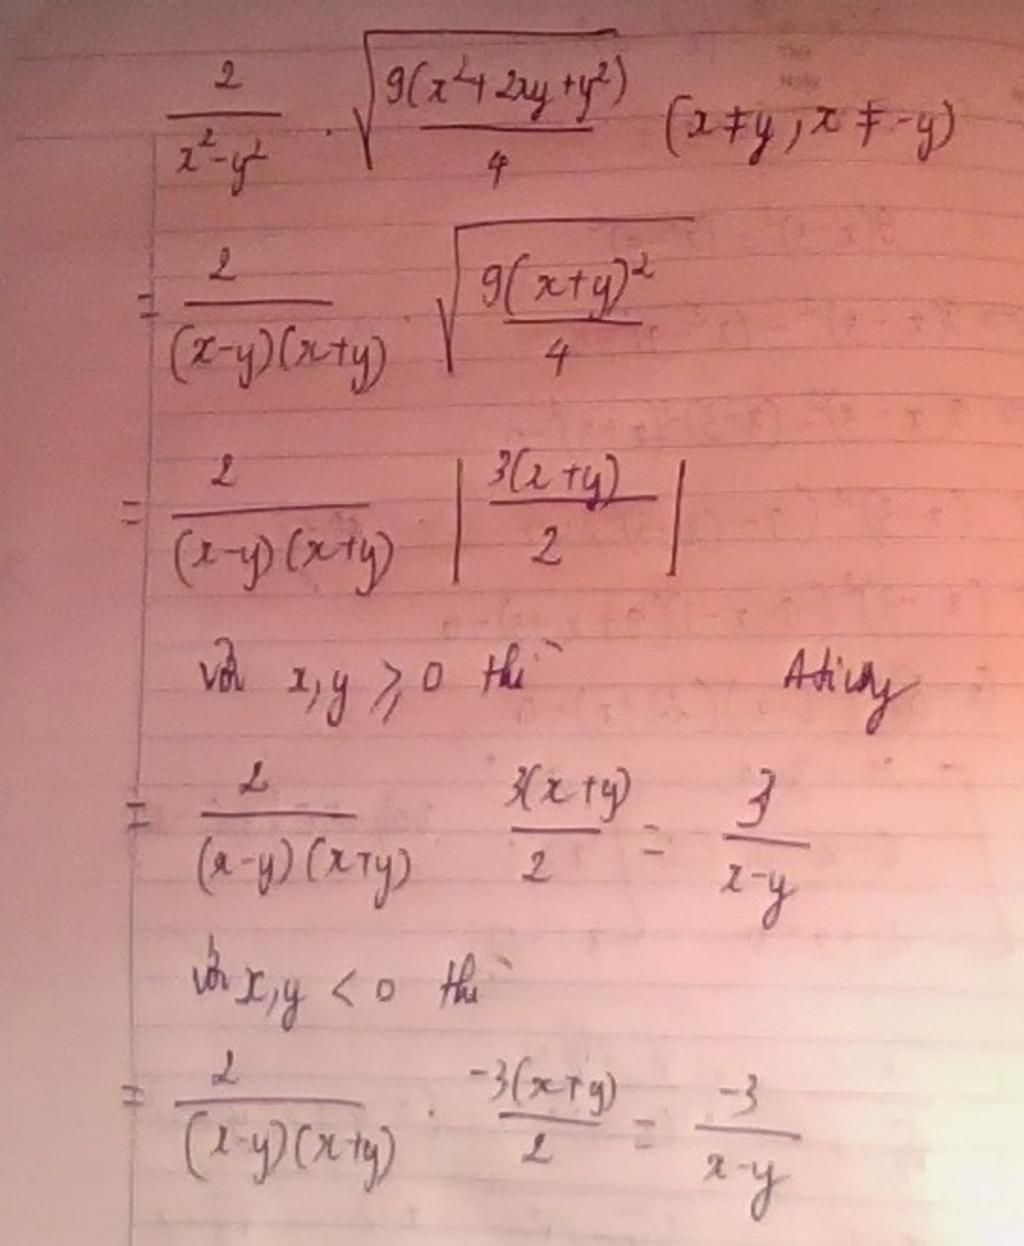 2/(x²-y²) . √(9(x²+2xy+y²)/4) (x≠y, x≠-y)
= 2/((x-y)(x+y)) . √(9(x+y)²/4)
= 2/((x-y)(x+y)) |3(x+y)/2|
với x,y ⩾ 0 thì
= 2/((x-y)(x+y)) 3(x+y)/2 = 3/(x-y)
với x,y < 0 thì
= 2/((x-y)(x+y)) . -3(x+y)/2 = -3/(x-y)